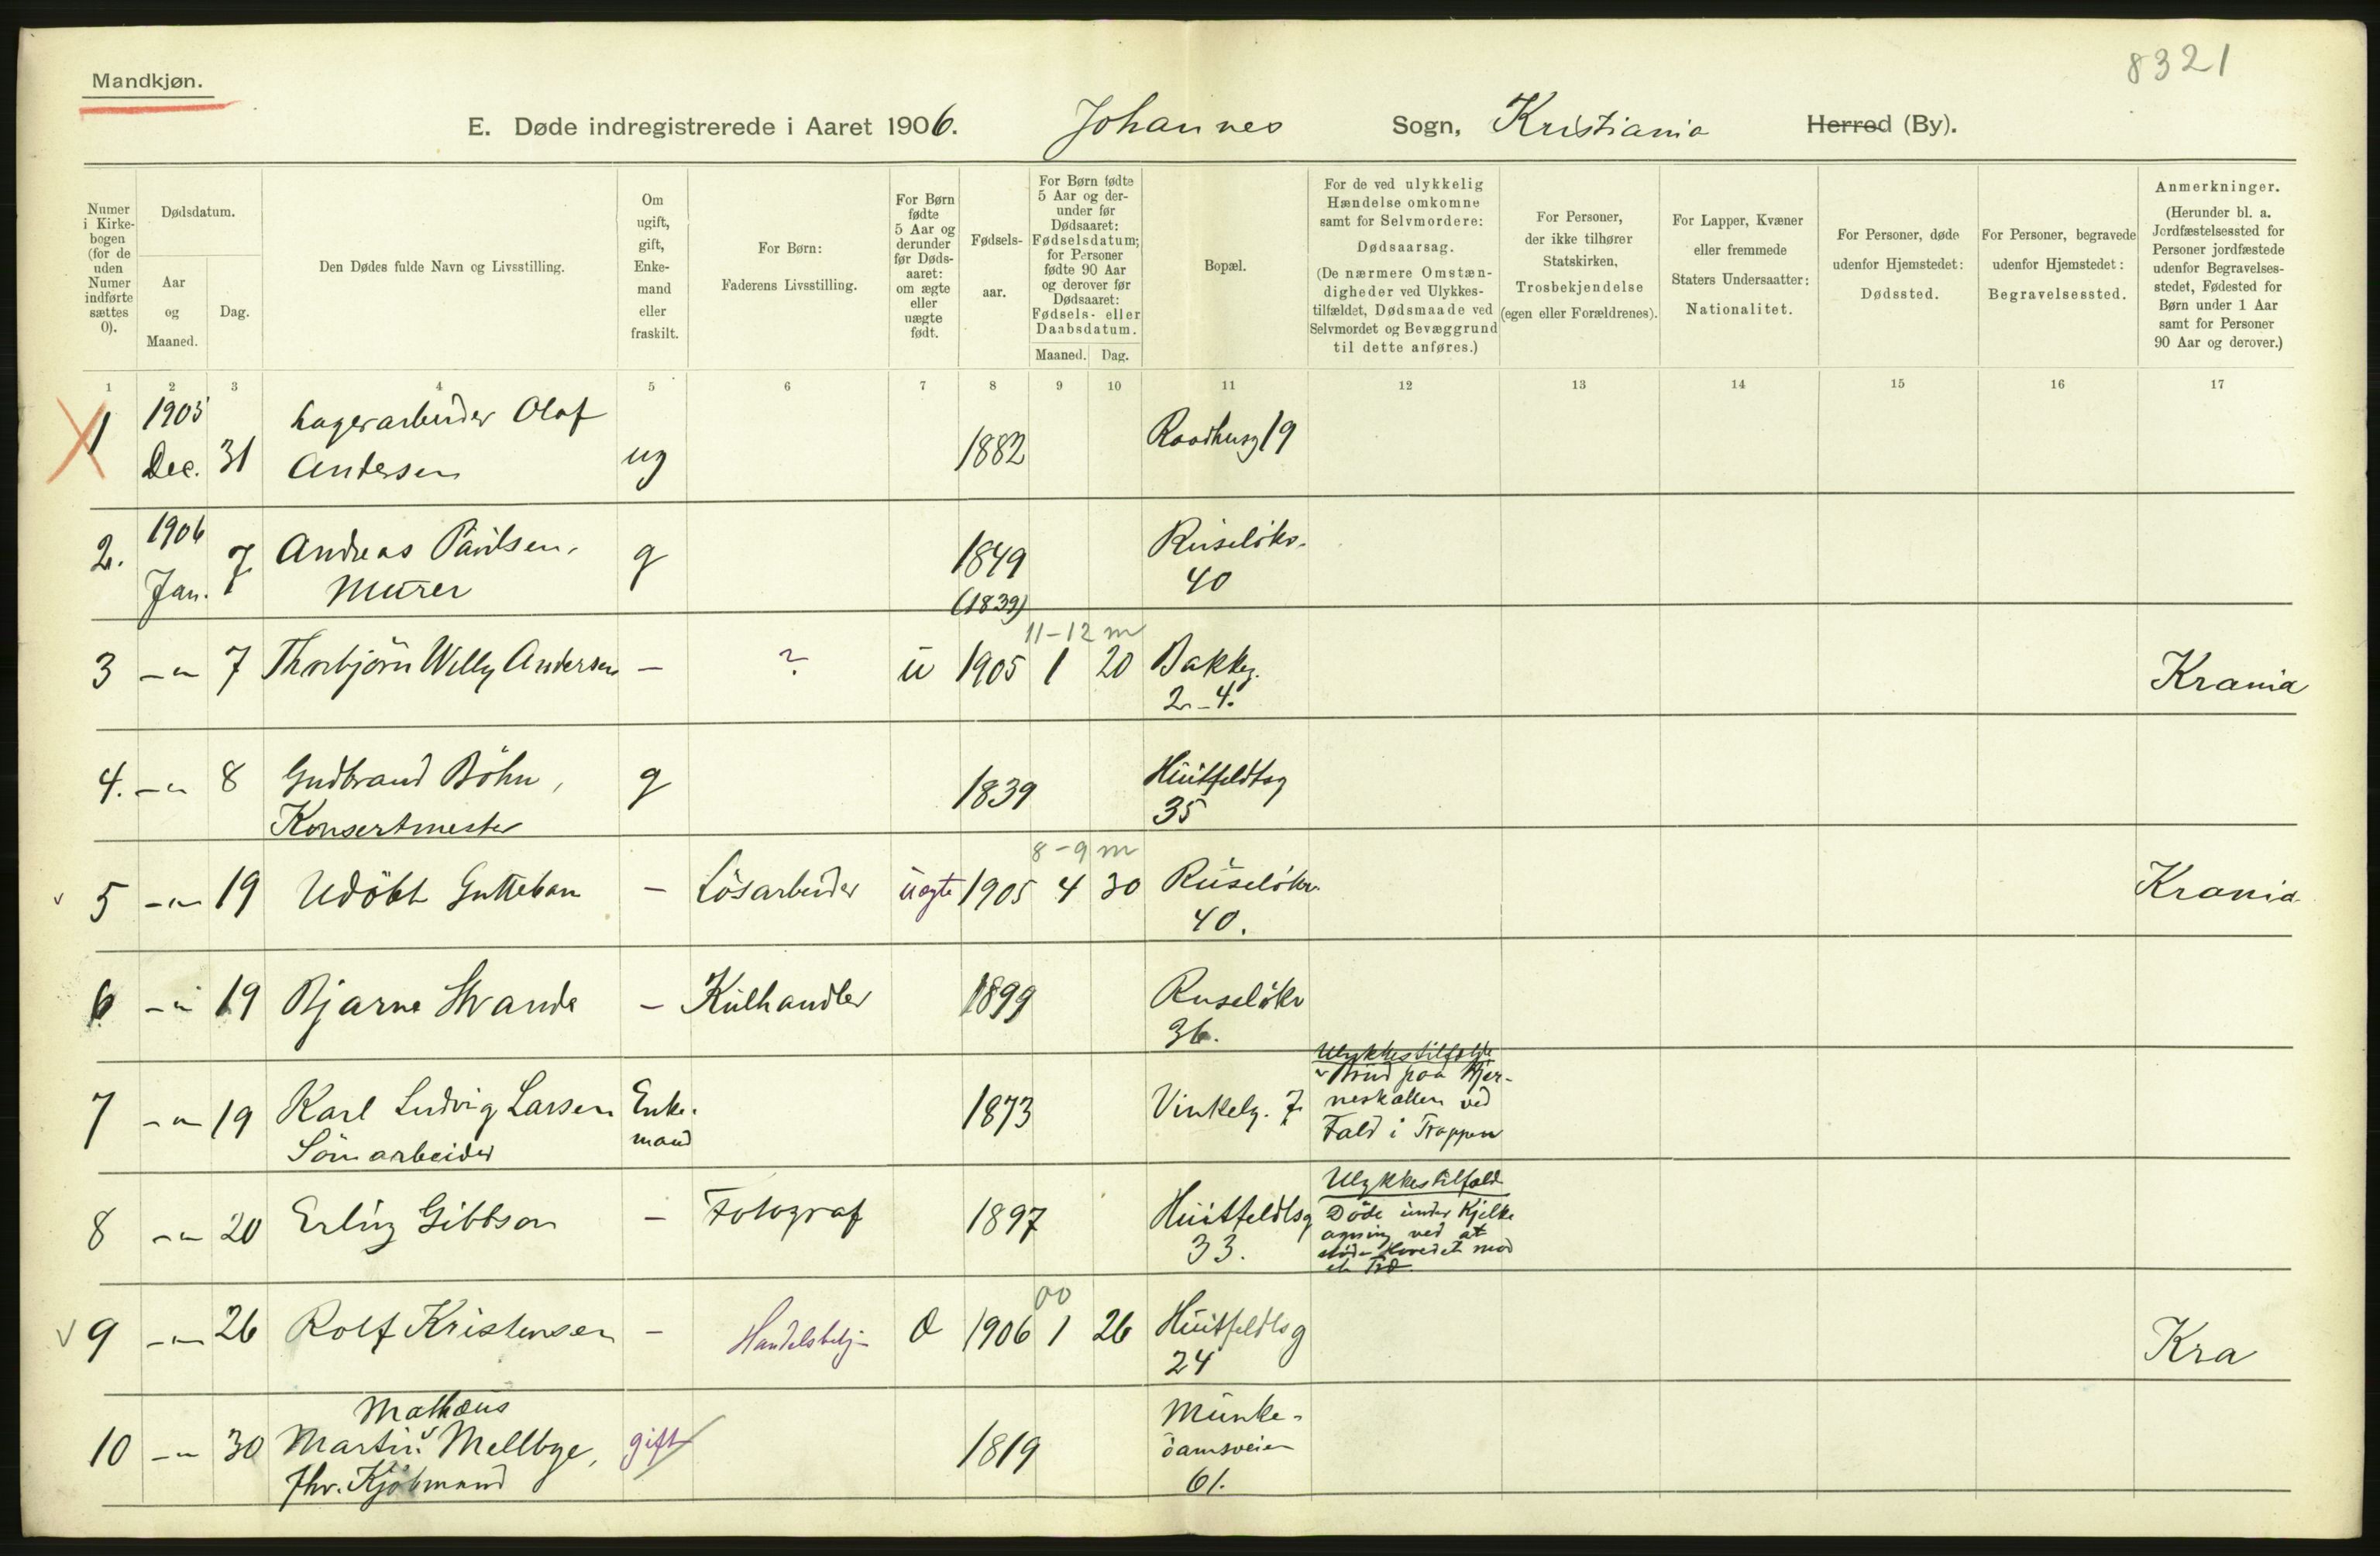 8321
Mandkjøn.
E. Døde indregistrerede i Aaret 1906. Johannes Sogn, Kristiania Herred (By).
Numer i Kirkebogen (for de uden Numer indførte sættes 0).
Dødsdatum.
Aar og Maaned.
Dag.
Den Dødes fulde Navn og Livsstilling.
Om ugift, gift, Enkemand eller fraskilt.
For Børn: Faderens Livsstilling.
For Børn fødte 5 Aar og derunder før Dødsaaret: om ægte eller uægte født.
Fødselsaar.
For Børn fødte 5 Aar og derunder før Dødsaaret: Fødselsdatum; for Personer fødte 90 Aar og derover før Dødsaaret: Fødsels- eller Daabsdatum.
Maaned. Dag.
Bopæl.
For de ved ulykkelig Hændelse omkomne samt for Selvmordere: Dødsaarsag. (De nærmere Omstændigheder ved Ulykkestilfældet, Dødsmaade ved Selvmordet og Bevæggrund til dette anføres.)
For Personer, der ikke tilhører Statskirken, Trosbekjendelse (egen eller Forældrenes).
For Lapper, Kvæner eller fremmede Staters Undersaatter: Nationalitet.
For Personer, døde udenfor Hjemstedet: Dødssted.
For Personer, begravede udenfor Hjemstedet: Begravelsessted.
Anmerkninger. (Herunder bl. a. Jordfæstelsessted for Personer jordfæstede udenfor Begravelsesstedet, Fødested for Børn under 1 Aar samt for Personer 90 Aar og derover.)
1 2 3 4 5 6 7 8 9 10 11 12 13 14 15 16 17
1 1905 Dec. 31 Lagerarbeider Olaf
Andersen ug 1882 Raadhusg 19
2. 1906 Jan. 7 Andreas Paulsen,
Murer g 1849 (1839) Ruseløkv. 40
11-12 m
3 -"- 7 Thorbjörn Willy Andersen - ? u 1905 1 20 Bakkeg. 2-4. Krania
4. -"- 8 Gudbrand Böhn,
Konsertmester g 1839 Huitfeldtsg 35
8-9 m
5 -"- 19 Udöbt Guttebarn - Lösarbeider uægte 1905 4 30 Ruseløkv. 40. Krania
6 -"- 19 Bjarne Strande - Kulhandler 1899 Ruseløkv 36.
7 -"- 19 Karl Ludvig Larsen
Sömarbeider Enkemand 1873 Vinkelg. 7
Ulykkestilfælde
Brud paa Hjer-
neskallen ved
Fald i Trappen
8 -"- 20 Erling Gibbson - Fotograf 1897 Huitfeldtsg 33.
Ulykkestilfæld
Döde under Kjelke
agning ved at
støde Hovedet mod
et Træ.
00
9 -"- 26 Rolf Kristensen - Handelsbetj- 1906 1 26 Huitfeldtsg 24 Kra
Mathæus
10 -"- 30 Martin Mellbye,
fhv. Kjöbmand gift 1819 Munke-
damsveien
61.